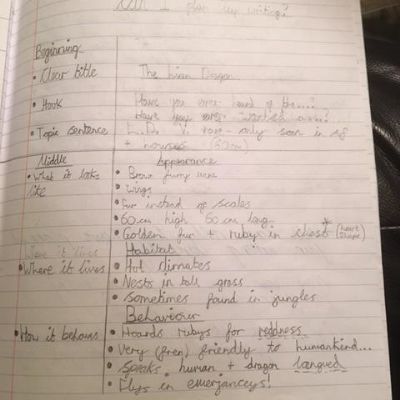 I plan my writing?
Beginning
• Clear title The Lion Dragon
• Hook Have you ever heard of fire...?
Have you ever wanted a...?
• Topic sentence rare - only seen in
+ houses (60cm)
Middle Appearance
• What it looks • Brown
like • Wings
• Fur instead of scales
• 60cm high 60cm long
• Golden fur + rubys in chest * (heart shape)
Habitat
• Where it lives • Hot climates
• Nests in tall grass
• Sometimes found in jungles
Behaviour
• How it behaves • Hoards rubys for redness
• Very (fren) friendly to humankind...
• Speaks human + dragon
• Flys in emerjanceys!